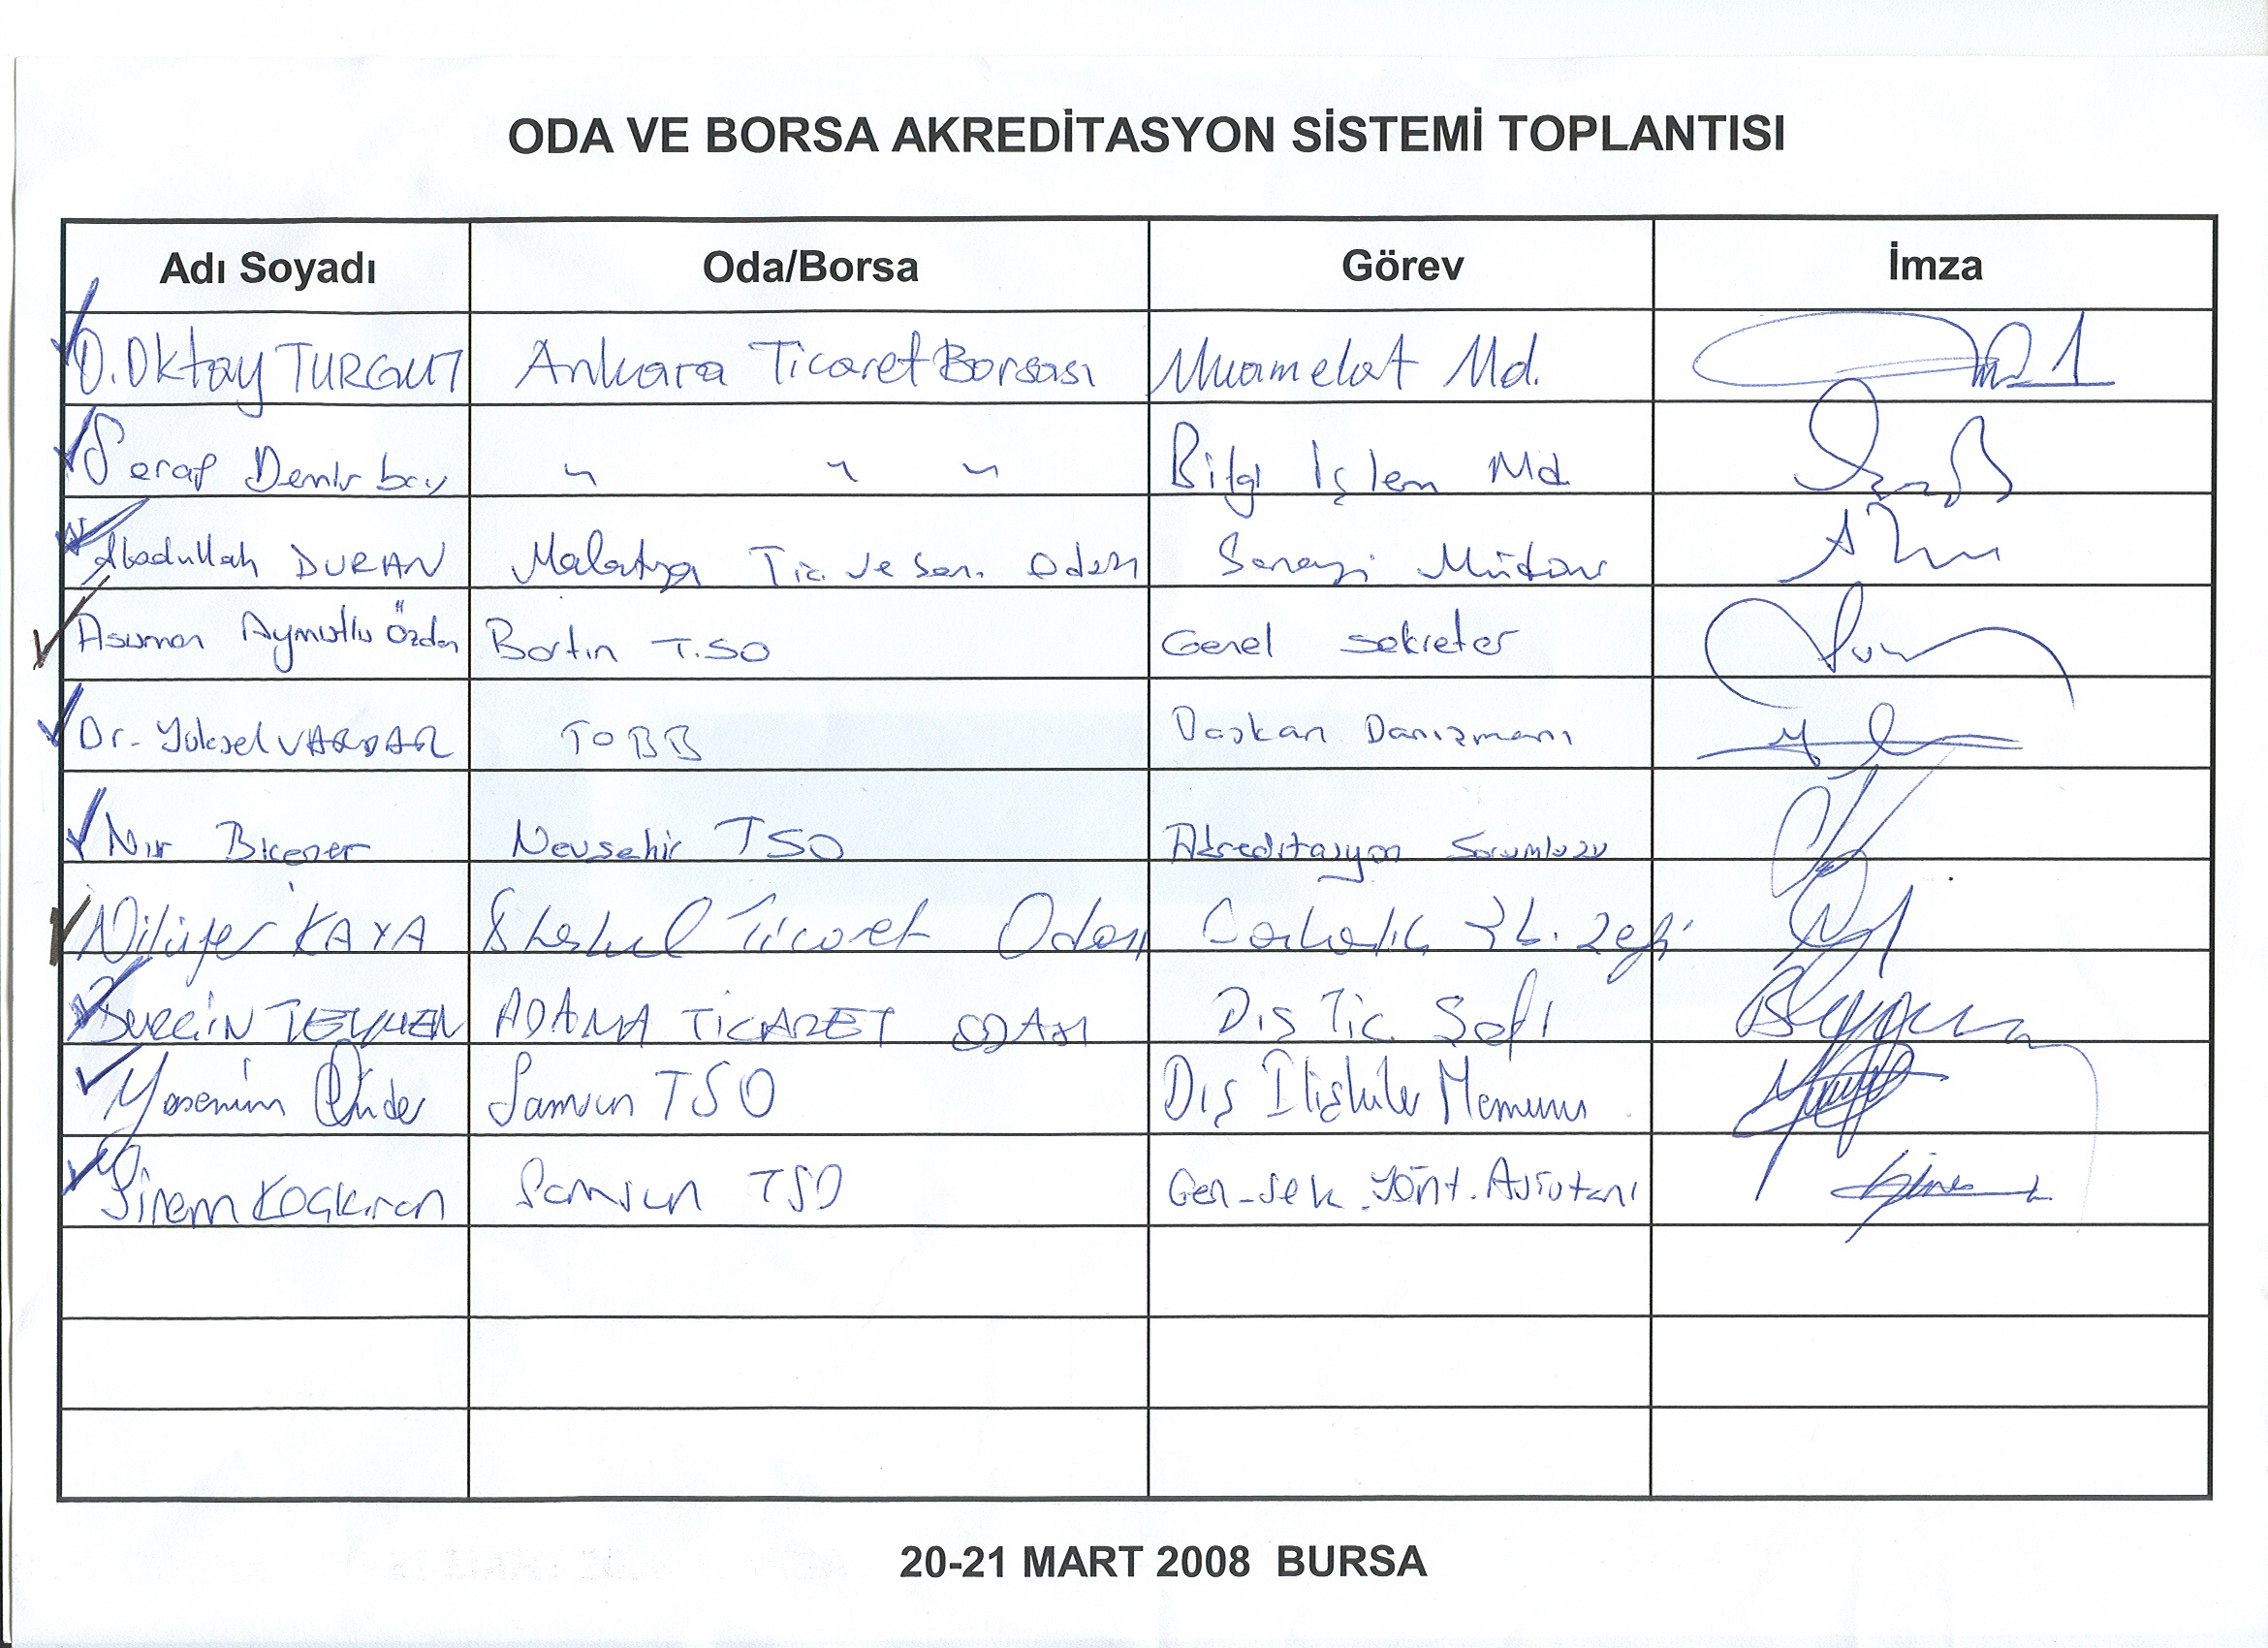 ODA VE BORSA AKREDİTASYON SİSTEMİ TOPLANTISI
Adı Soyadı Oda/Borsa Görev İmza
O. Oktay TURGUT Ankara Ticaret Borsası Muamelat Md.
Serap Demirbay " " " Bilgi İşlem Md.
Abdullah DURAN Malatya Tic. ve San. Odası Sanayi Müdürü
Asuman Aymutlu Özden Bartın T.SO Genel Sekreter
Dr. Yüksel VARDAR TOBB Başkan Danışmanı
Nur Nevşehir TSO Akreditasyon Sorumlusu
Nilüfer KAYA Ticaret Odası
ADANA TİCARET ODASI Dış Tic. Şefi
Yasemin Samsun TSO Dış İlişkiler Memuru
Sinem KOÇKıran Samsun TSO Gen-Sek. Yönt. Asistanı
20-21 MART 2008 BURSA